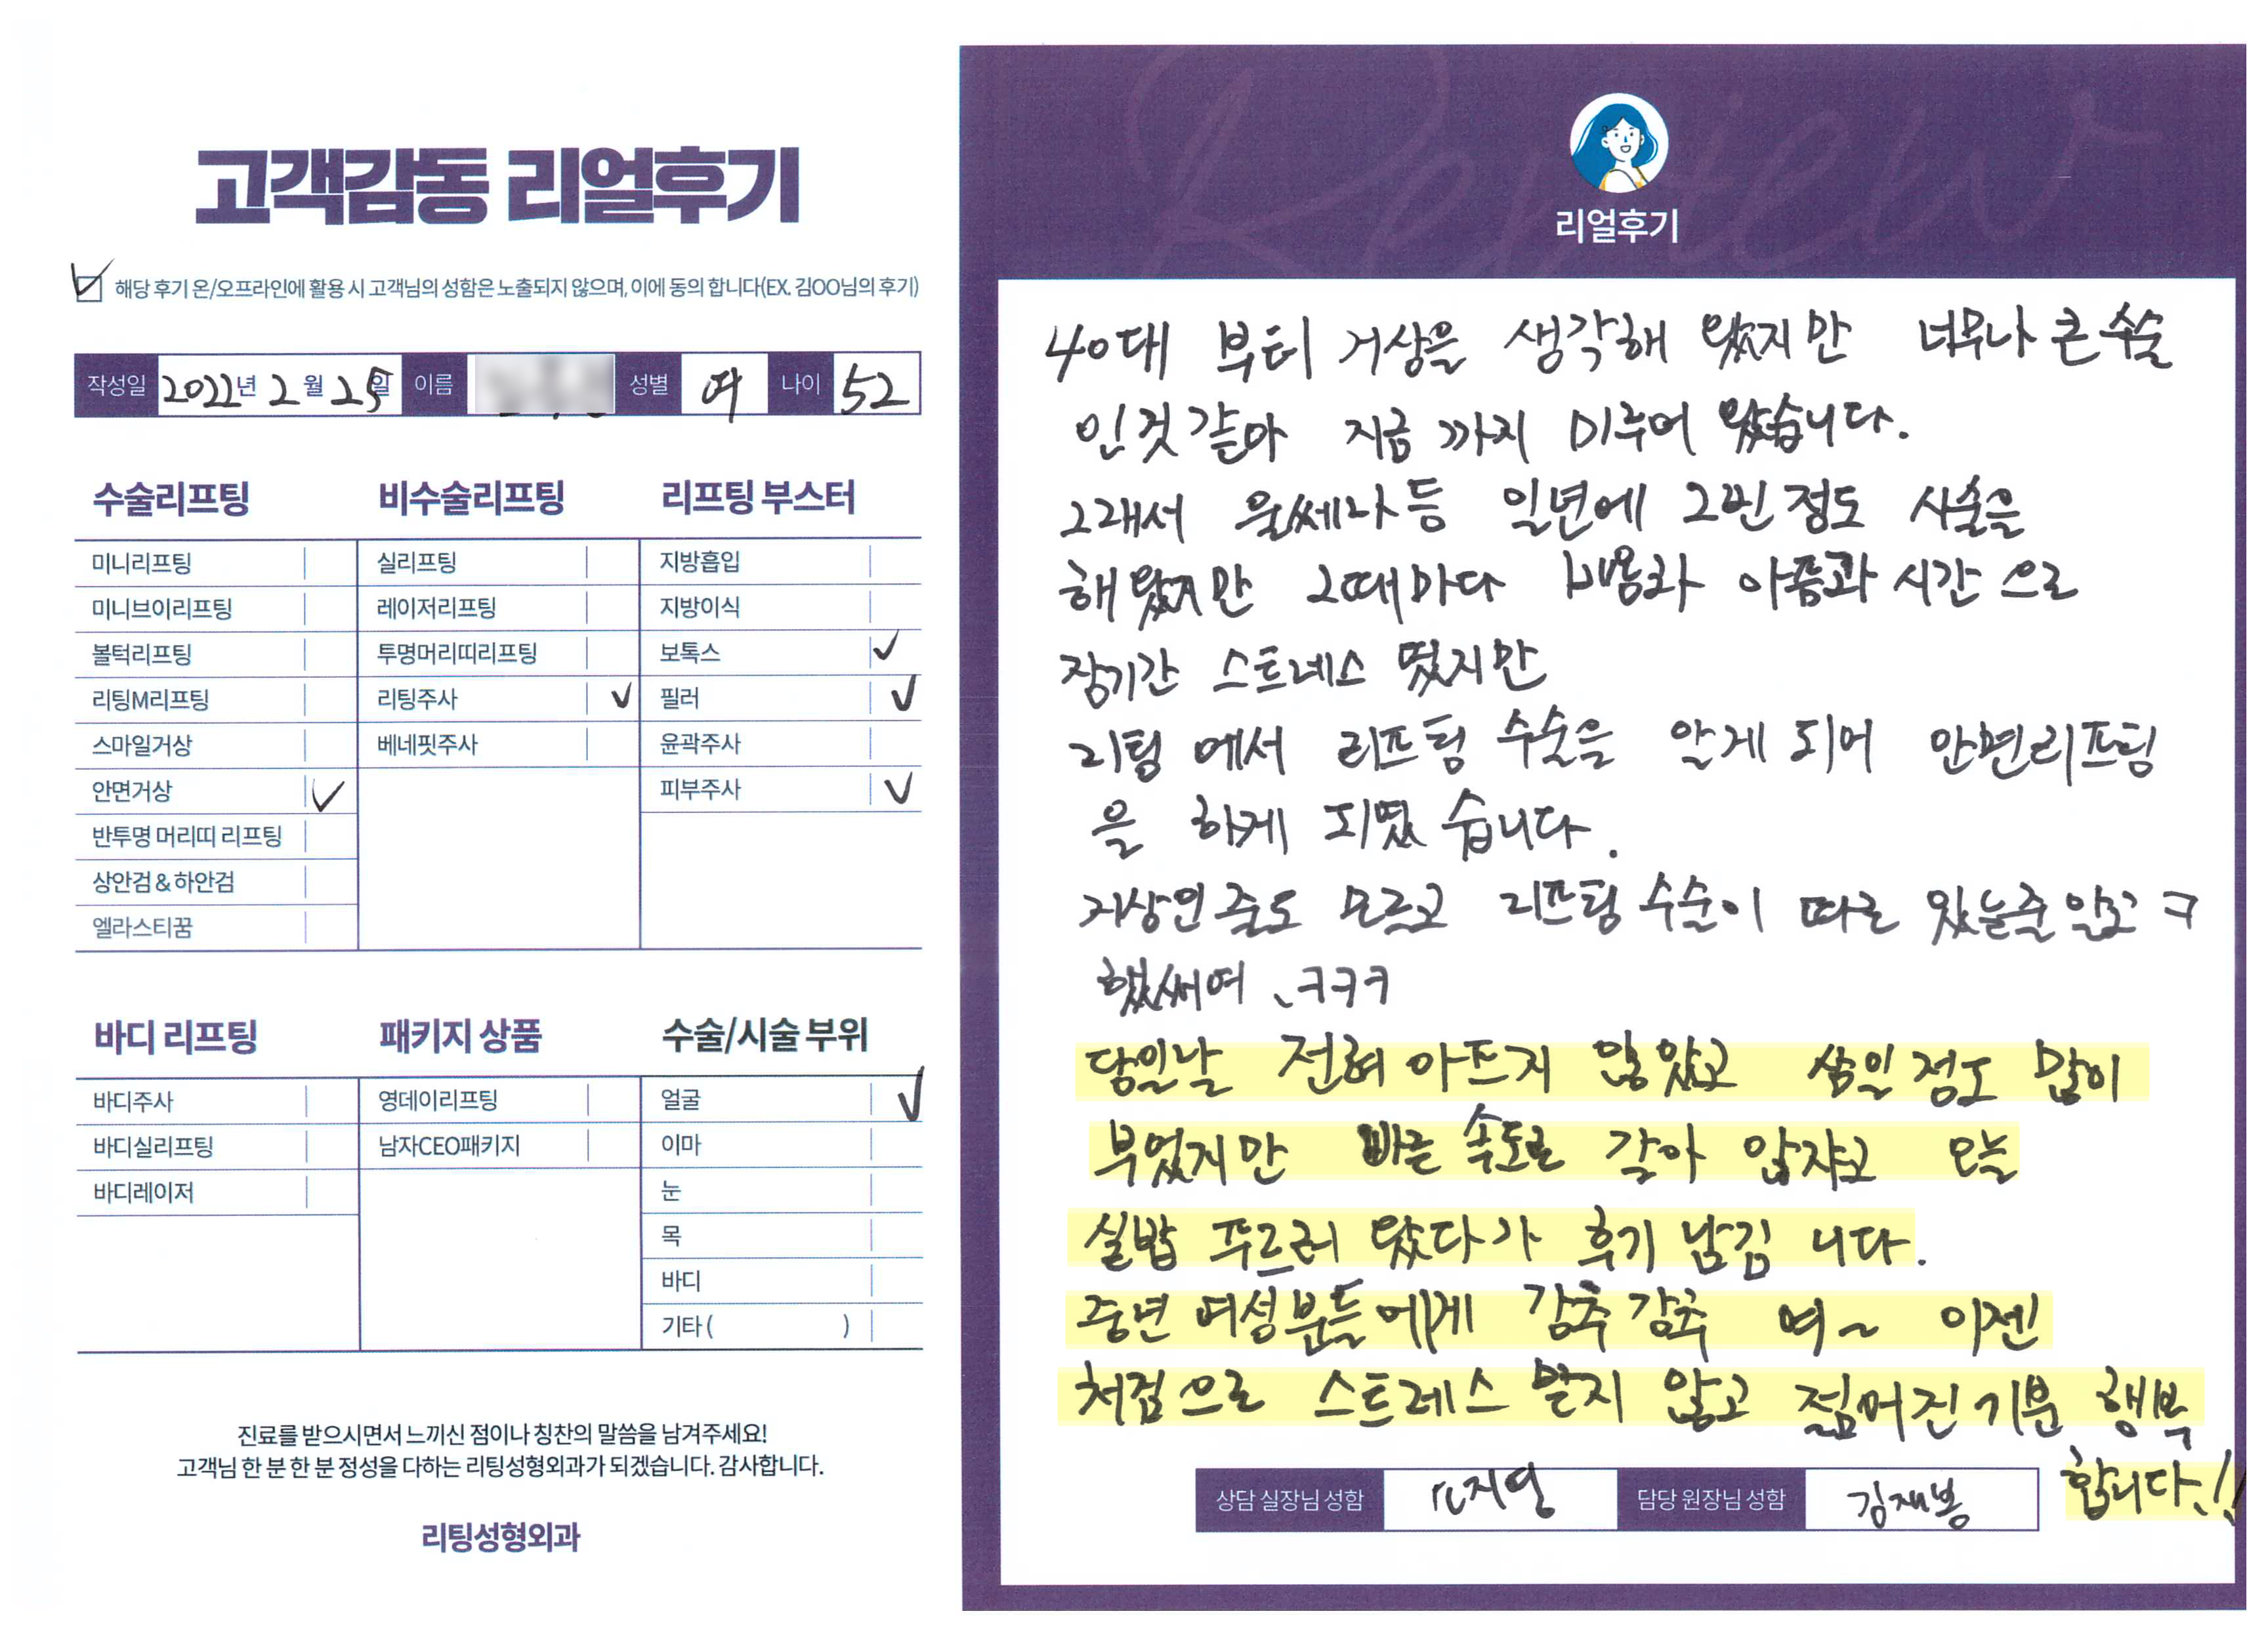 고객감동 리얼후기
해당 후기 온/오프라인에 활용 시 고객님의 성함은 노출되지 않으며, 이에 동의 합니다(EX. 김OO님의 후기)
작성일 2022년 2월 25일 이름 성별 여 나이 52
수술리프팅
미니리프팅
미니브이리프팅
볼턱리프팅
리팅M리프팅
스마일거상
안면거상 ✓
반투명 머리띠 리프팅
상안검 & 하안검
엘라스티꿈
비수술리프팅
실리프팅
레이저리프팅
투명머리띠리프팅
리팅주사 ✓
베네핏주사
리프팅 부스터
지방흡입
지방이식
보톡스 ✓
필러 ✓
윤곽주사
피부주사 ✓
바디 리프팅
바디주사
바디실리프팅
바디레이저
패키지 상품
영데이리프팅
남자CEO패키지
수술/시술 부위
얼굴 ✓
이마
눈
목
바디
기타 ( )
진료를 받으시면서 느끼신 점이나 칭찬의 말씀을 남겨주세요!
고객님 한 분 한 분 정성을 다하는 리팅성형외과가 되겠습니다. 감사합니다.
리팅성형외과
Review
리얼후기
40대 부터 거상을 생각해 왔지만 너무나 큰 수술
인것 같아 지금 까지 미루어 왔습니다.
그래서 울쎄라 등 일년에 2번 정도 시술을
해 왔지만 그때마다 비용과 아픔과 시간 으로
장기간 스트레스 였지만
리팅 에서 리프팅 수술을 알게 되어 안면리프팅
을 하게 되였 습니다.
거상인 줄도 모르고 리프팅 수술이 따로 있는줄 알고 ㅋ
했써여 、ㅋㅋㅋ
당일날 전혀 아프지 않았고 삼일 정도 많이
부었지만 빠른 속도로 갈아 앉자고 오늘
실밥 푸르러 왔다가 후기 남김 니다.
중년 여성분들에게 강추 강추 여~ 이젠
처짐으로 스트레스 받지 않고 젊어진 기분 행복
합니다.!!
상담 실장님 성함 지영 담당 원장님 성함 김재봉